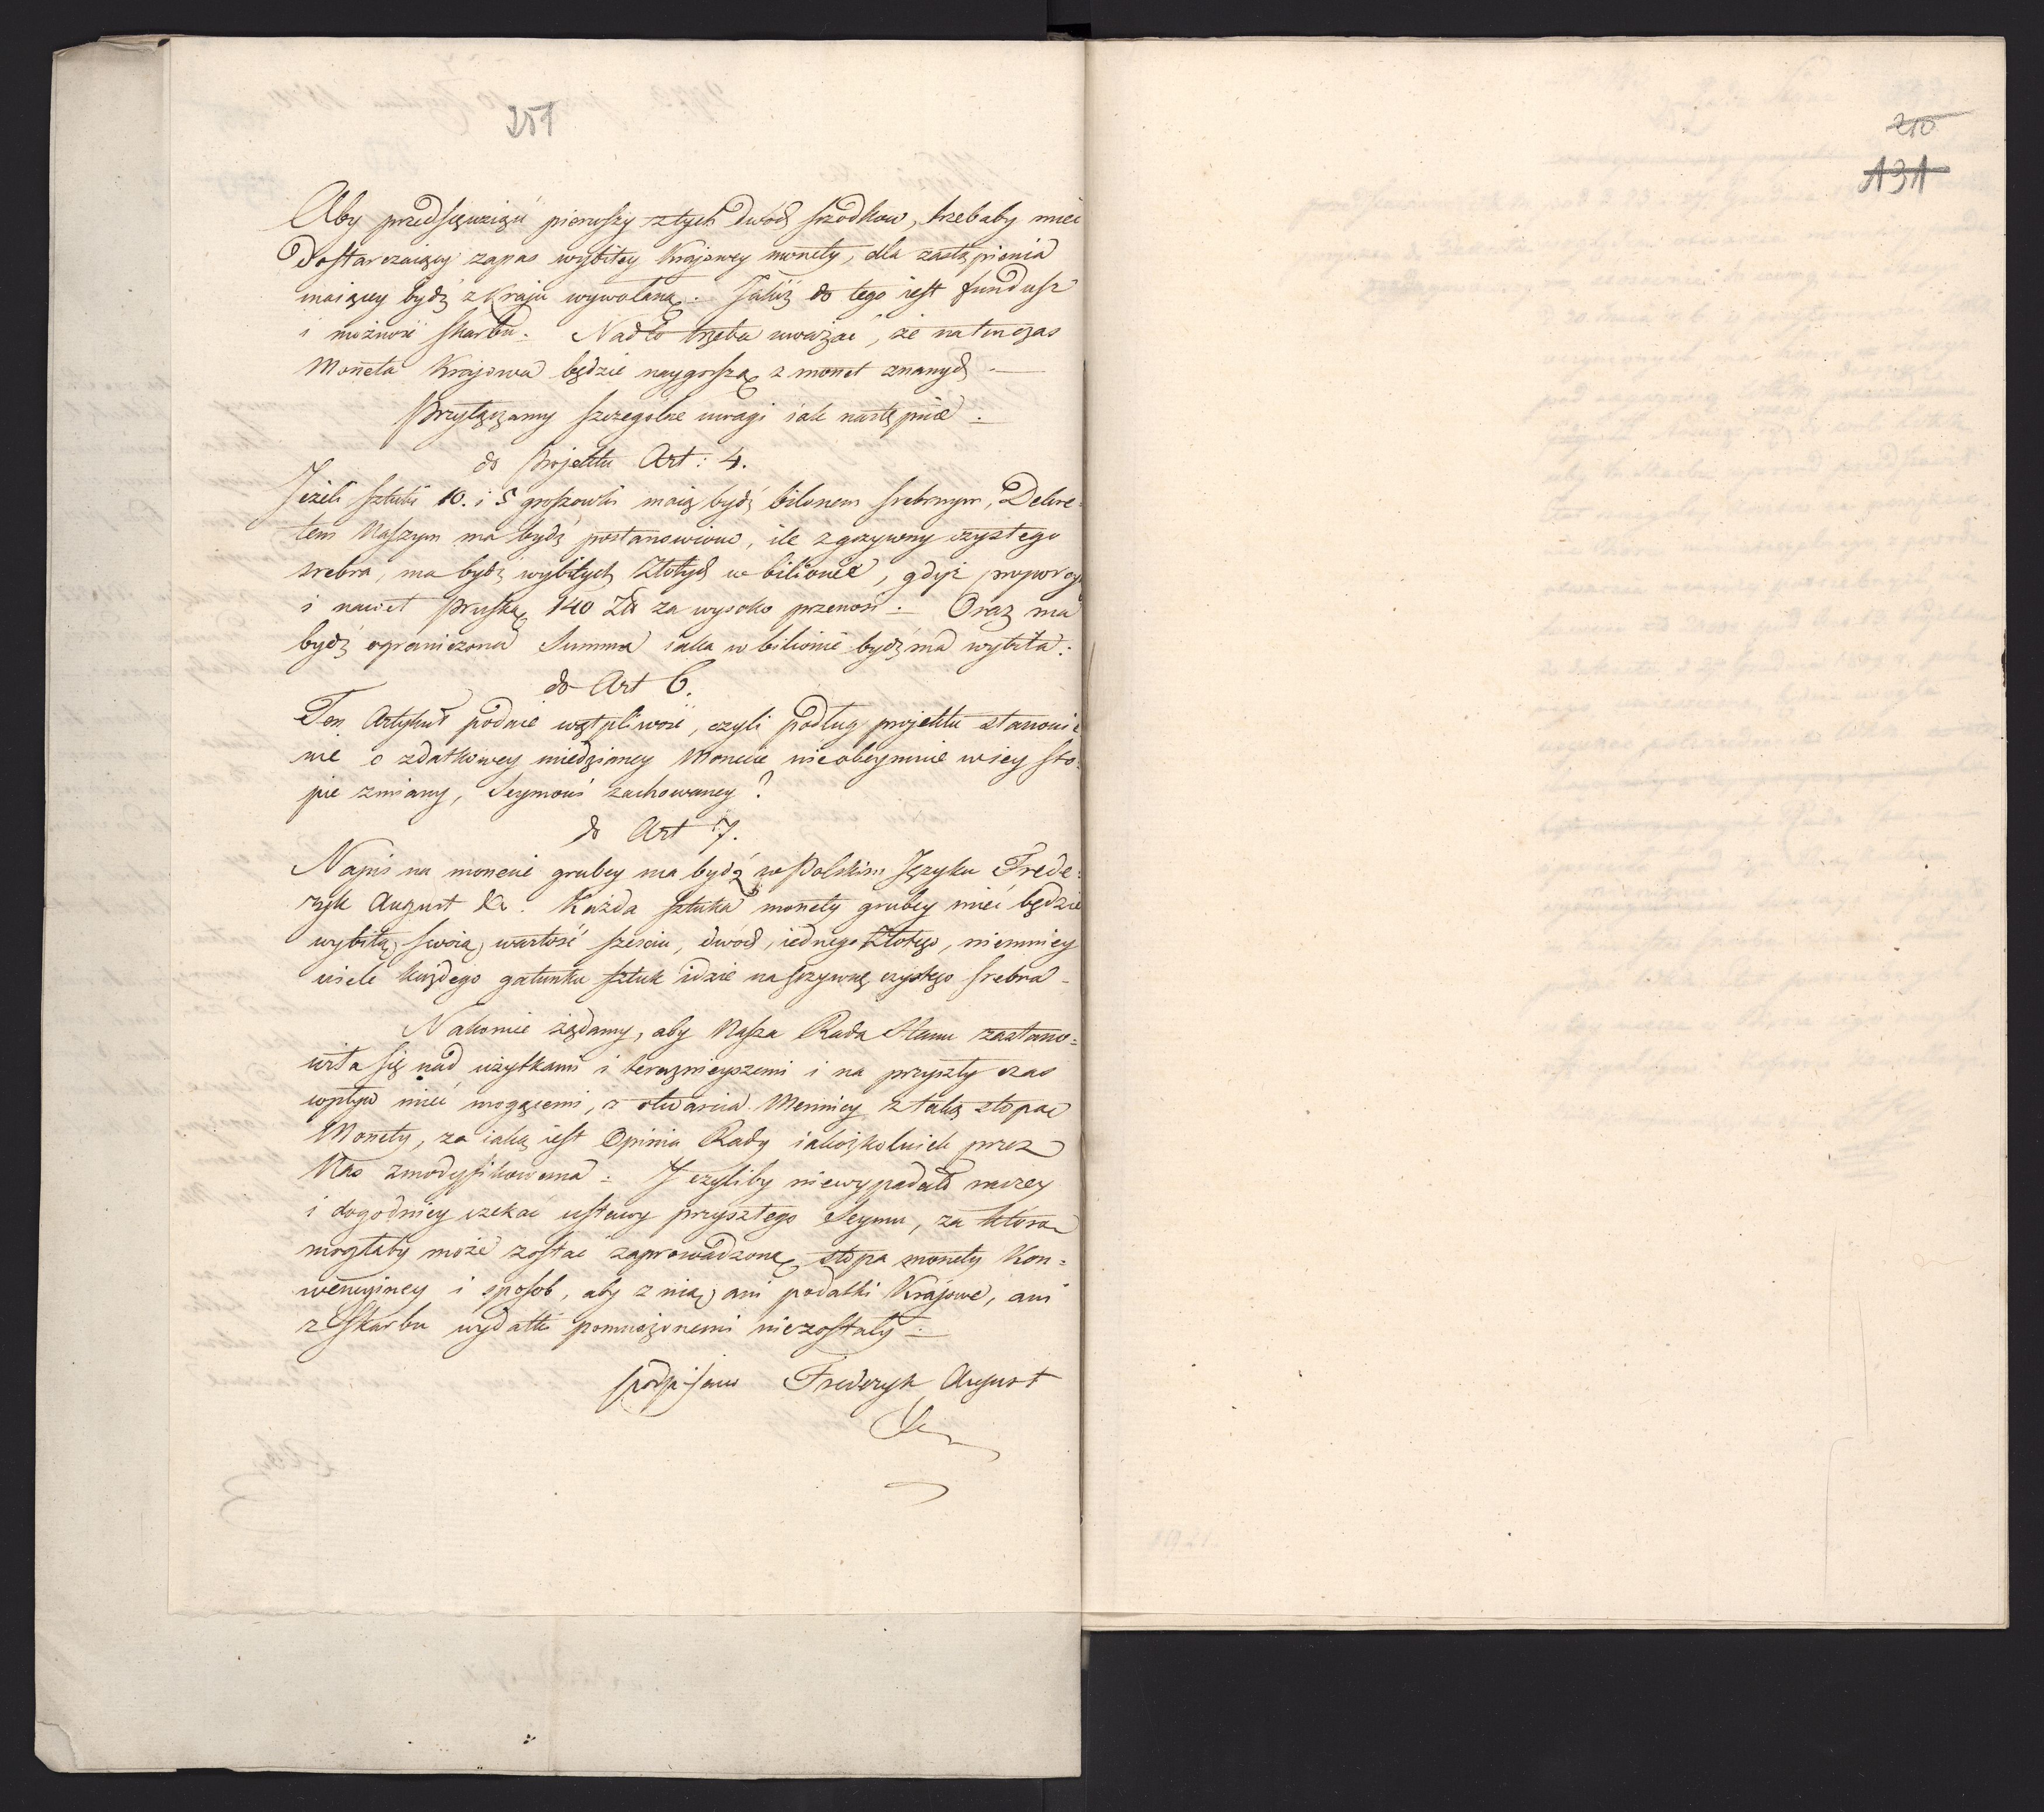 251
Aby przedsięwziąć pierwszy z tych dwóch szodkow, trzebaby mieć
dostarczaiący zapas wybitey Krajowey monety, dla zastąpienia
maiącey bydź z kraju wywołaną. Jakiż do tego iest fundusz
i możność skarbu. Nadto trzeba uważać, że natenczas
Moneta Krajowa będzie naygorszą z monet znanych.
Przyłączamy szczególne uwagi iak następuie.
do Projektu Art: 4.
Jeżeli sztuki 10. i 5 groszowki maią bydź bilonem srebrnym, Dekre=
tem Naszym ma bydź postanowiono, ile z grzywny czystego
srebra, ma bydź wybitych Złotych w bilionie, gdyż proporcy
i nawet Pruską 140 Zł za wysoko przenosi. Oraz ma
bydź ograniczona Summa iaka w bilionie bydź ma wybita.
do Art 6.
Ten Artykuł podaie wątpliwość, czyli podług projektu stanowie
nie o zdatkowey miedzianey Monecie nieobeymuie w iey sto=
pie zmiany, Seymowi zachowaney?
do Art 7.
Napis na monecie grubey ma bydź w Polskim Języku Frede=
ryk August &c. Każda sztuka monety grubey mieć będzie
wybitą swoią wartość sześciu, dwóch, iednego Złotego, niemniey
wiele każdego gatunku sztuk idzie na grzywnę czystego srebra.
Nakoniec żądamy, aby Nasza Rada Stanu zastano=
wiła się nad użytkami i teraznieyszemi i na przyszły czas
wpływ mieć mogącemi, z otwarcia Mennicy z taką stopą
Monety, za iaką iest Opinia Rady iakożkolwiek przez
Nas zmodyfikowana. Jeżyliby niewypadało raczey
i dogodniey czekać ustawy przyszłego Seymu, za którą
mogłaby może zostać zaprowadzoną stopa monety Kon=
wencyiney i sposob, aby z nią ani podatki Krajowe, ani
z Skarbu wydatki pomnożonemi niezostały.
podpisano Frederyk August
210
131